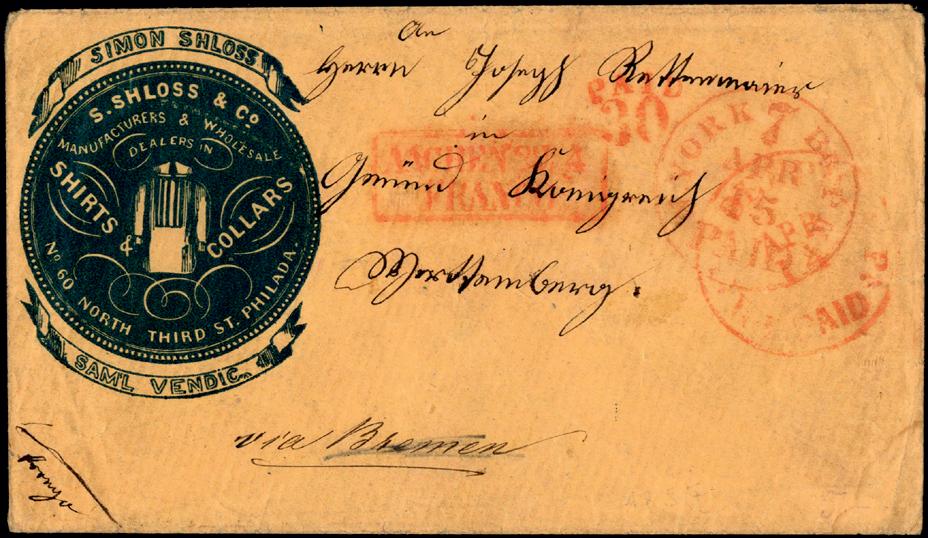 SIMON SHLOSS
S. SHLOSS & Co
MANUFACTURERS & WHOLESALE
DEALERS IN
SHIRTS & COLLARS
No 60 NORTH THIRD ST. PHILADA.
SAM'L VENDIG.
An
Herrn Joseph Rettenmaier
in
Gmünd Königreich
Würtemberg.
via Bremen
PAID
30
AACHEN
FRANCO
YORK
7
APR
PAID
PAID